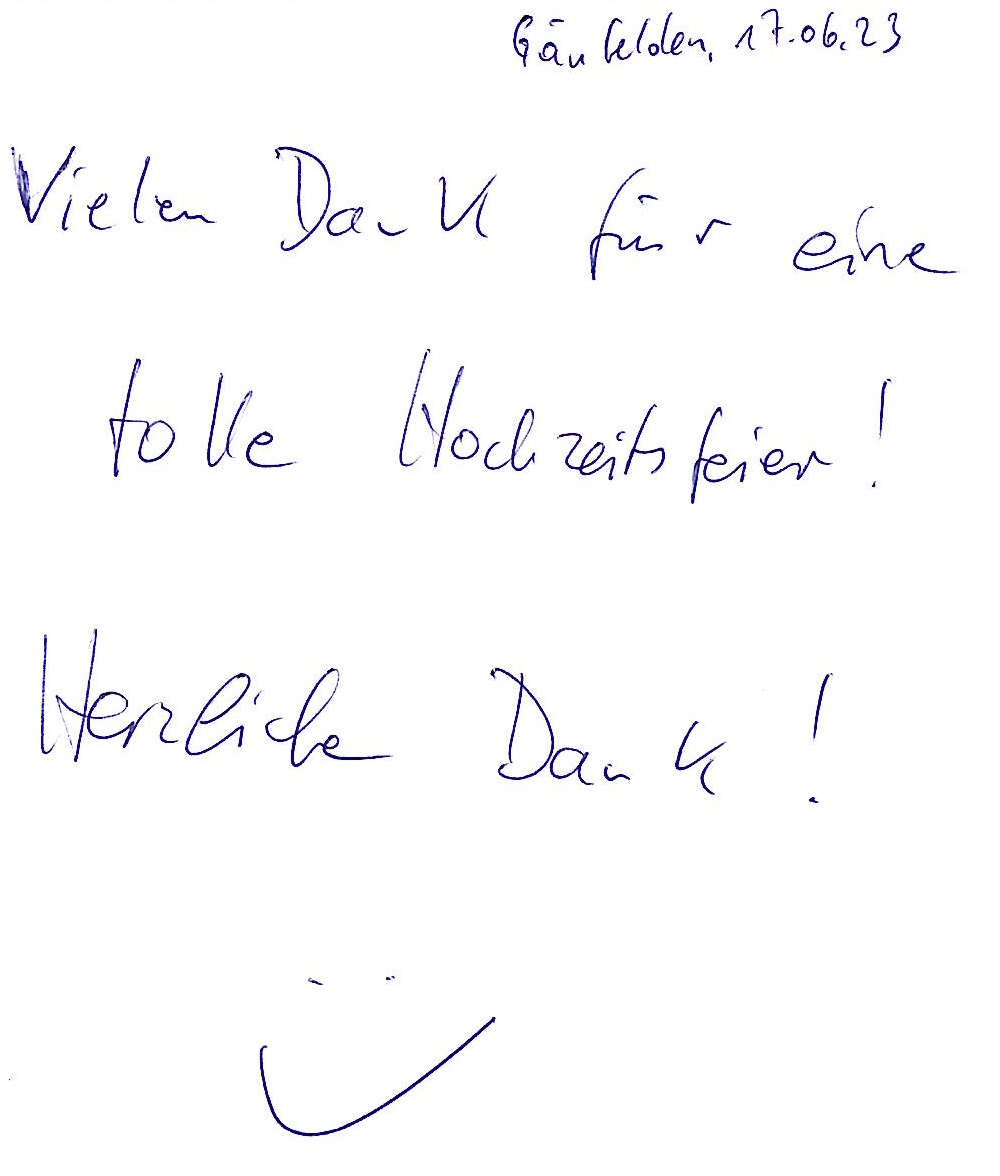 Gäufelden, 17.06.23
Vielen Dank für eine
tolle Hochzeitsfeier!
Herzliche Dank!